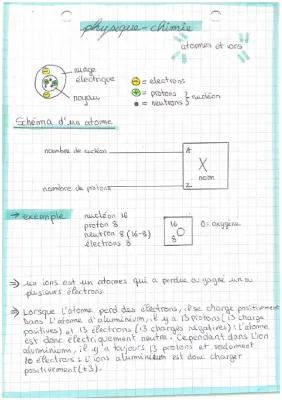 physique-chimie
atomes et ions
nuage
électrique
noyau
= electrons
= protons } nucléon
= neutrons
Schéma d'un atome
nombre de nucléon
A
X
nom
nombre de protons
Z
→ exemple
nucléon 16
proton 8
neutron 8 (16-8)
électrons 8
16
O
8
O = oxygène
⇒ un ions est un atomes qui a perdue ou gagne un ou
plusieurs électrons
⇒ Lorsque l'atome perd des électrons, il se charge positivement
Dans l'atome d'aluminium, il y a 13 protons (13 charge
positives) et 13 électrons (13 charges négatives) : L'atome
est donc électriquement neutre. Cependant dans l'ion
aluminiums, il y a toujours 13 protons et seulement
10 électrons : L'ions aluminium est donc charger
positivement (+3).